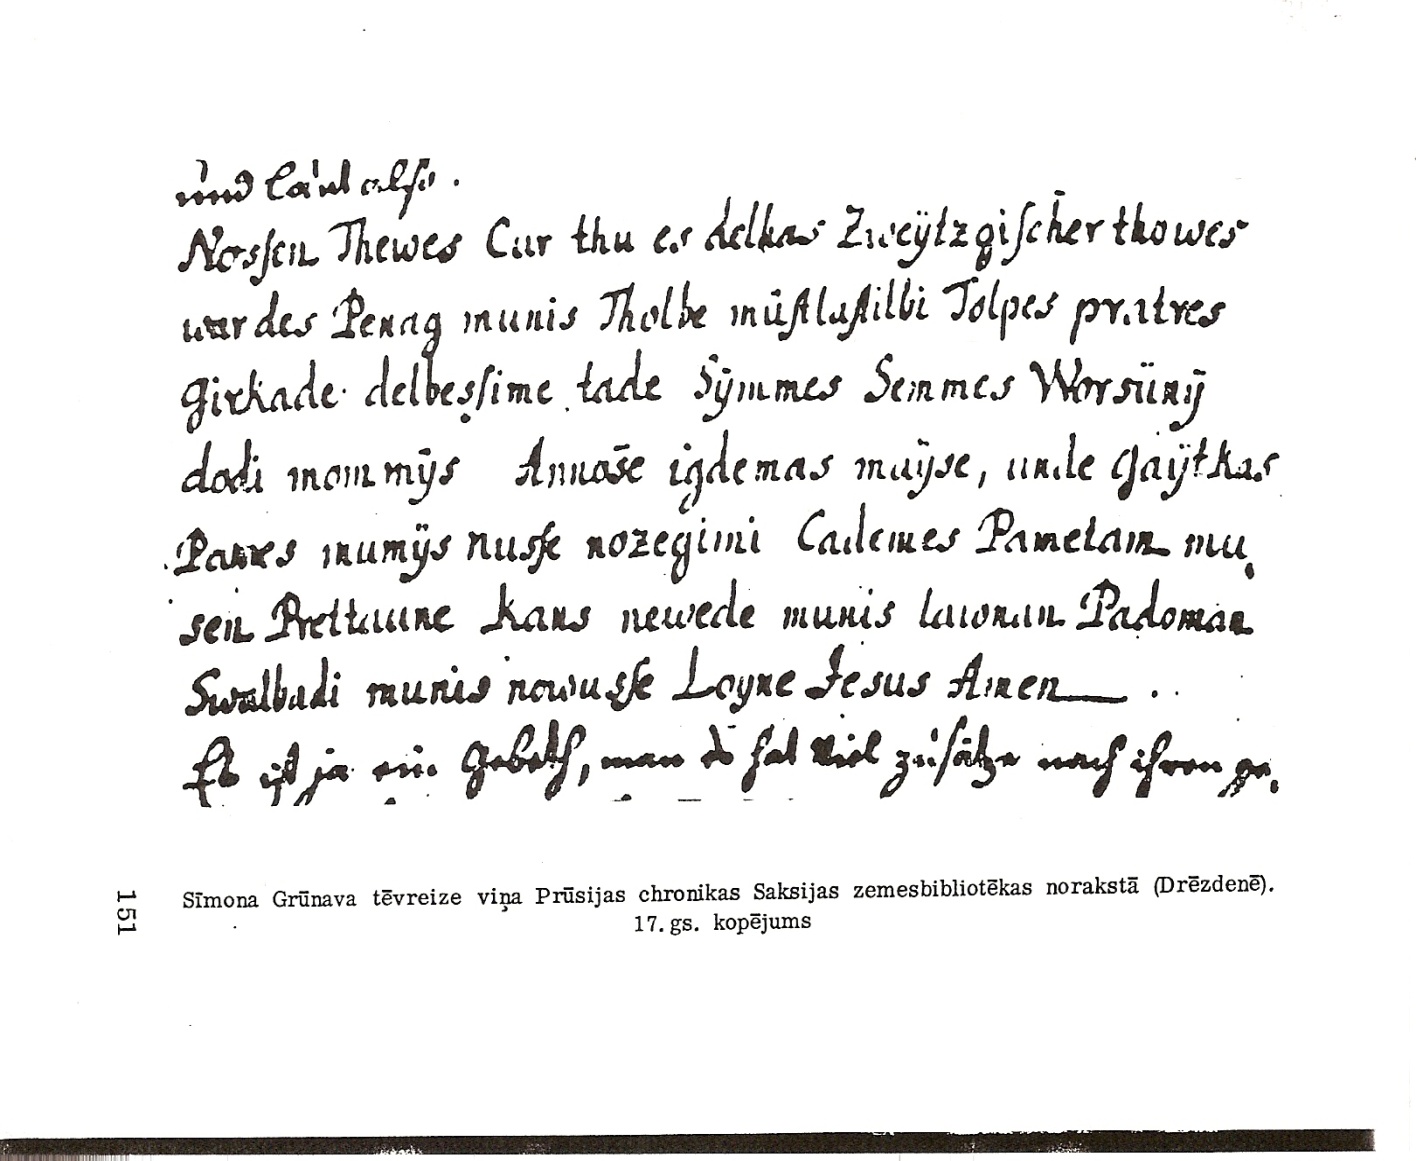 und laut also.
Nossen Thewes Cur thu es delkas Zweÿtzgischer thowes
wardes Penag munis Tholbe mūstlastilbi Tolpes pratres
girkade delbessime tade Sÿmmes Semmes Worsünÿ
dodi mommÿs Annosē igdemas muÿse, unde Gaÿtkas
Pames mumÿs nusse nozegimi Cademes Pametam mu,
sen Prettaune Kans newede munis lawonan Padoman
Swalbadi munis nowusse Loyne Jesus Amen ..
Es ist ja ein gebeth, man hat viel zusätze nach ihren ge,
151
Sīmona Grūnava tēvreize viņa Prūsijas chronikas Saksijas zemesbibliotēkas norakstā (Drēzdenē).
17. gs. kopējums